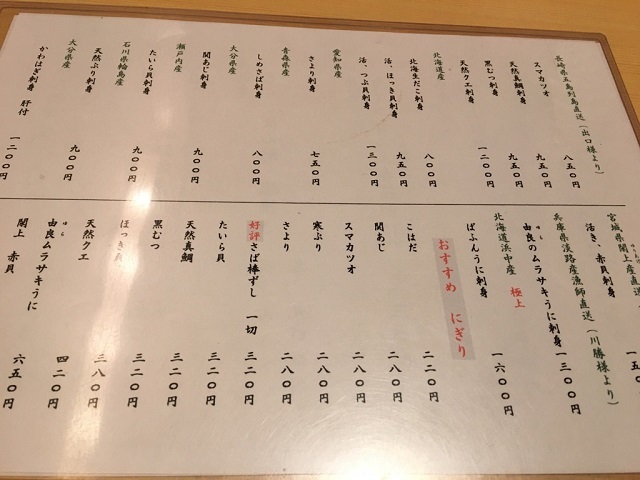 長崎県五島列島直送(出口様より)
スマカツオ 八五〇円
天然真鯛刺身 九五〇円
黒むつ刺身 九五〇円
天然クエ刺身 一二〇〇円
北海道産
北海生だこ刺身 八〇〇円
活、ほっき貝刺身 九五〇円
活、つぶ貝刺身 一三〇〇円
愛知県産
さより刺身 七五〇円
青森県産
しめさば刺身 八〇〇円
大分県産
関あじ刺身 九〇〇円
瀬戸内産
たいら貝刺身 九〇〇円
石川県輪島産
天然ぶり刺身 九〇〇円
大分県産
かわはぎ刺身 肝付 一二〇〇円
宮城県閖上産直送
活き、赤貝刺身 一五〇
兵庫県淡路産漁師直送(川勝様より)
由良のムラサキうに刺身 一三〇〇円
北海道浜中産 極上
ばふんうに刺身 一六〇〇円
おすすめ にぎり
こはだ 二二〇円
関あじ 二八〇円
スマカツオ 二八〇円
寒ぶり 二八〇円
さより 二八〇円
好評さば棒ずし 一切 三二〇円
たいら貝 三二〇円
天然真鯛 三二〇円
黒むつ 三二〇円
ほっき貝 三八〇円
天然クエ 四二〇円
由良ムラサキうに 六五〇円
閖上 赤貝